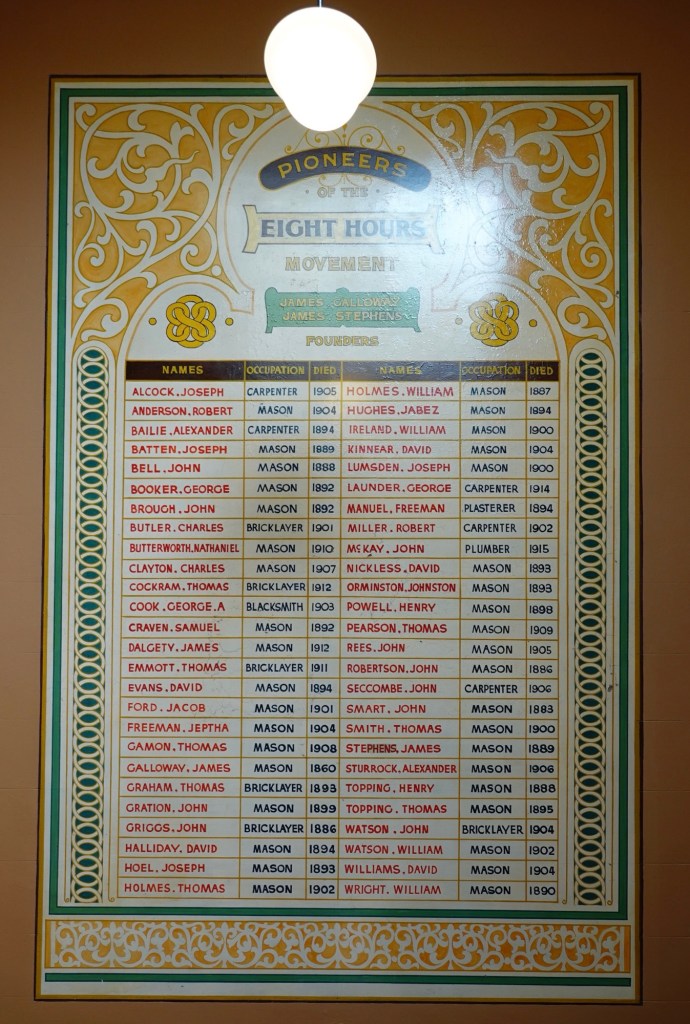 PIONEERS
OF THE
EIGHT HOURS
MOVEMENT
JAMES GALLOWAY
JAMES STEPHENS
FOUNDERS
NAMES OCCUPATION DIED NAMES OCCUPATION DIED
ALCOCK. JOSEPH CARPENTER 1905 HOLMES. WILLIAM MASON 1887
ANDERSON. ROBERT MASON 1904 HUGHES. JABEZ MASON 1894
BAILIE. ALEXANDER CARPENTER 1894 IRELAND. WILLIAM MASON 1900
BATTEN. JOSEPH MASON 1889 KINNEAR. DAVID MASON 1904
BELL. JOHN MASON 1888 LUMSDEN. JOSEPH MASON 1900
BOOKER. GEORGE MASON 1892 LAUNDER. GEORGE CARPENTER 1914
BROUGH. JOHN MASON 1892 MANUEL. FREEMAN PLASTERER 1894
BUTLER. CHARLES BRICKLAYER 1901 MILLER. ROBERT CARPENTER 1902
BUTTERWORTH. NATHANIEL MASON 1910 McKAY. JOHN PLUMBER 1915
CLAYTON. CHARLES MASON 1907 NICKLESS. DAVID MASON 1893
COCKRAM. THOMAS BRICKLAYER 1912 ORMINSTON. JOHNSTON MASON 1893
COOK. GEORGE. A BLACKSMITH 1903 POWELL. HENRY MASON 1898
CRAVEN. SAMUEL MASON 1892 PEARSON. THOMAS MASON 1909
DALGETY. JAMES MASON 1912 REES. JOHN MASON 1905
EMMOTT. THOMAS BRICKLAYER 1911 ROBERTSON. JOHN MASON 1886
EVANS. DAVID MASON 1894 SECCOMBE. JOHN CARPENTER 1906
FORD. JACOB MASON 1901 SMART. JOHN MASON 1883
FREEMAN. JEPTHA MASON 1904 SMITH. THOMAS MASON 1900
GAMON. THOMAS MASON 1908 STEPHENS. JAMES MASON 1889
GALLOWAY. JAMES MASON 1860 STURROCK. ALEXANDER MASON 1906
GRAHAM. THOMAS BRICKLAYER 1893 TOPPING. HENRY MASON 1888
GRATION. JOHN MASON 1899 TOPPING. THOMAS MASON 1895
GRIGGS. JOHN BRICKLAYER 1886 WATSON. JOHN BRICKLAYER 1904
HALLIDAY. DAVID MASON 1894 WATSON. WILLIAM MASON 1902
HOEL. JOSEPH MASON 1893 WILLIAMS. DAVID MASON 1904
HOLMES. THOMAS MASON 1902 WRIGHT. WILLIAM MASON 1890